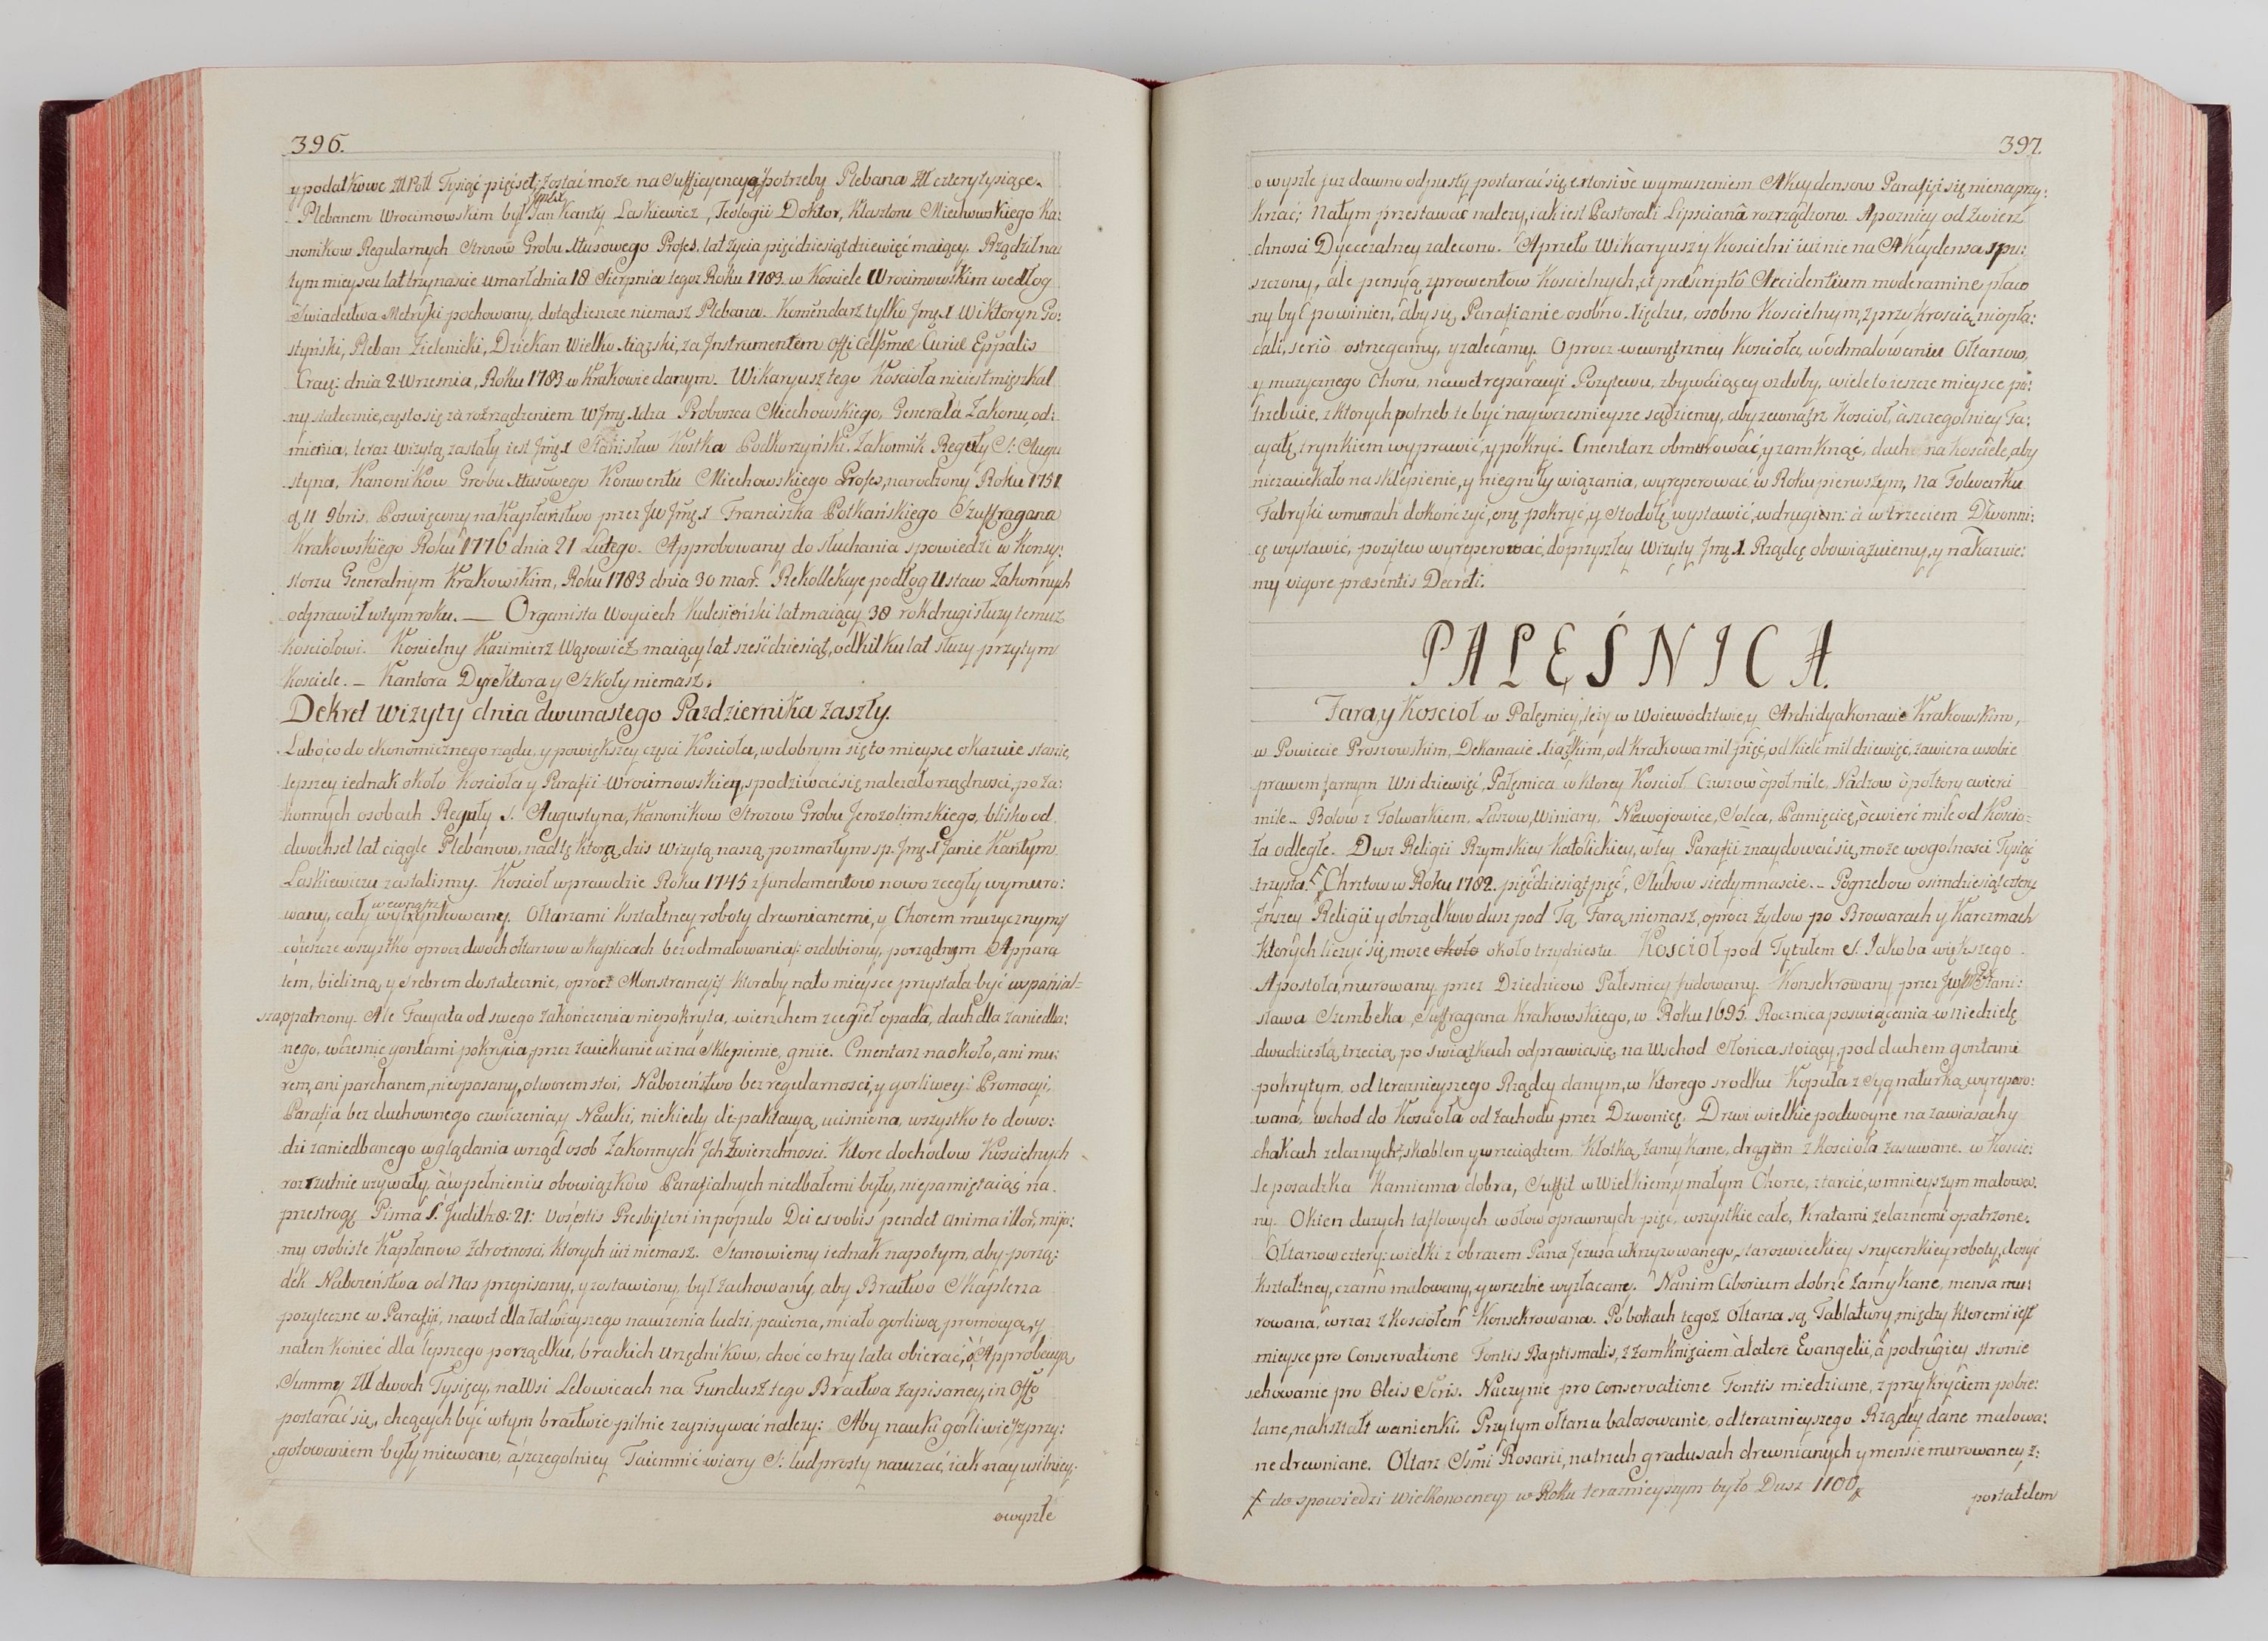 396.
y podatkowe Tysiąc pięćset, zostać może na Sufficyencyą potrzeby Plebana Zll cztery tysiące.
Plebanem Wrocimowskim był Jan Kanty Laskiewicz, Teologii Doktor, Klasztoru Miechowskiego Ka:
nonikow Regularnych Strozow Grobu Profes. lat życia pięćdziesiąt dziewięć maiący. Rządził na
tym mieyscu lat trzynascie umarł dnia 18 Sierpnia tegoz Roku 1783 w Kosciele Wrocimowskim według
Swiadectwa Metryki pochowany, dotąd ieszcze niemasz Plebana. Komendarz tylko Wiktoryn Go:
styński, Pleban Zielenicki, Dziekan Wielko za Instrumentem Curiæ Eppalis
dnia 2 Wrzesnia, Roku 1783 w Krakowie danym. Wikaryusz tego Koscioła nieiest mięszkal
ny statecznie, często się za rozrządzeniem Proboszcza Miechowskiego, Generała Zakonu, od:
mienia, teraz wizytą zastały iest Stanisław Kostka Podkorzyński. Zakonnik Reguły S: Augu
styna, Kanonikow Grobu Konwentu Miechowskiego Profes, narodzony Roku 1751
d 11 9bris. Poswięcony na Kapłaństwo przez Franciszka Potkańskiego Szuffragana
Krakowskiego Roku 1776 dnia 21 Lutego. Approbowany do słuchania spowiedzi w Konsy:
storzu Generalnym Krakowskim, Roku 1783 dnia 30 mar. Rekollekcye podług Ustaw Zakonnych
odprawił w tym roku. — Organista Woyciech lat maiący 38 rok drugi służy temuz
Kosciołowi. Koscielny Kazimierz Wąsowicz maiący lat sześćdziesiąt, od kilku lat służy przy tym
Kosciele. — Kantora Dyrektora y Szkoły niemasz.
Dekret Wizyty dnia dwunastego Pazdziernika zaszły.
Lubo co do ekonomicznego rządu, y powiększey części Koscioła, w dobrym się to mieysce okazuie stanie,
lepszey iednak około Kosciola y Parafii Wrocimowskiey, spodziwać się należało rządnosci, po Za:
konnych osobach Reguły S. Augustyna, Kanonikow Strozow Grobu Jerozolimskiego, blisko od
dwochset lat ciągle Plebanow, nad tę ktorą dzis Wizytą naszą, po zmarłym sp. Janie Kantym
Laskiewiczu zastalismy. Kosciół wprawdzie Roku 1745 z fundamentow nowo z cegły wymuro:
wany, cały wewnątrz wytrynkowany. Ołtarzami kształtney roboty drewnianemi, y Chorem muzycznym
co ieszcze wszystko oprocz dwoch ołtarzow w kaplicach bez odmalowania ozdobiony, porządnym Appara
tem, bielizną y srebrem dostatecznie, oprocz Monstrancyi ktoraby na to mieysce przystała być wspanial=
sza, opatrzony. Ale Facyata od swego zakończenia niepokryta, wierzchem z cegieł opada, dach dla zaniedba:
nego, wczesnie gontami pokrycia, przez zaciekanie uz na Sklepienie, gniie. Cmentarz na około, ani mu:
rem, ani parchanem, nieopasany, otworem stoi, Nabozeństwo bez regularnosci, y gorliwey Promocyi,
Parafia bez duchownego czwiczenia y Nauki, niekiedy uciśniona, wszystko to dowo:
dzi zaniedbanego wglądania w rząd osob Zakonnych Ich Zwierzchnosci. Ktore dochodow Koscielnych
rozrzutnie uzywały, a w pełnieniu obowiązków Parafialnych niedbałemi były, niepamiętaiąc na
przestrogę Pisma S. Judith: 8: 21: Vos estis Presbyteri in populo Dei et ex vobis pendet anima illor, mijo:
my osobiste Kapłanow zdroznosci, ktorych niemasz. Stanowiemy iednak na potym, aby porzą:
dek Nabozeństwa od Nas przepisany, y zostawiony, był zachowany, aby Bractwo Skaplerza
pozyteczne w Parafii, nawet dla łatwieyszego nauczenia ludzi, pacierza, miało gorliwą promocyą, y
na ten koniec dla lepszego porządku, brackich Urzędników, choć co trzy lata obierać, o Approbacyą
Summy Zll dwoch Tysięcy, na Wsi Lelowicach na Fundusz tego Bractwa zapisaney, in Offo
postarać się, chcących być w tym bractwie pilnie zapisywać nalezy: Aby nauki gorliwie, z przy:
gotowaniem były miewane, a szczegolniey Taiemnic wiary S: lud prosty nauczać, iak nayusilniey.
owyszłe
397.
o wyszłe juz dawno odpusty postarać się extorsivè wymuszeniem Akcydensow Parafii się nienaprzy:
krzać; Na tym przestawać nalezy, iak iest Pastorali Lipsciana rozrządzono. A pozniey od Zwierz
chnosci Dyecezalney zalecono. A przeto Wikaryuszy Koscielni iuznie na Akcydensa spu:
szczony, ale pensyą z prowentow Koscielnych, et præscripto Accidentium moderamine płaco
ny być powinien, aby się Parafianie osobno Xiędzu, osobno Koscielnym, z przykroscią nieopła:
cali, serio ostrzegamy, y zalecamy. Oprocz wewnętrzney Kosciola, w odmalowaniu Ołtarzow,
y muzycznego Choru, nawet reparacyi Pozytewu, zbywaiącey ozdoby, wiele to ieszcze mieysce po:
trzebuie, z ktorych potrzeb te być naywczesnieysze sądziemy, aby zewnątrz Kosciol, a szczegolniey Fa:
cyatę, trynkiem wyprawić, y pokryć. Cmentarz obmurować, y zamknąć, dach na Kosciele, aby
niezaciekało na sklepienie, y niegniły wiązania, wyreperować w Roku pierwszym, Na Folwarku
Fabryki w murach dokończyć, onę pokryć, y Stodołę wystawić, w drugiem: a w trzeciem Dzwonni:
cę wystawić, pozytew wyreperować, do przyszłey Wizyty Rządcę obowiązuiemy, y nakazuie:
my vigore præsentis Decreti.
PAŁĘŚNICA.
Fara, y Kosciol w Pałęsnicy, lezy w Woiewodztwie, y Archidyakonacie Krakowskim,
w Powiecie Proszowskim, Dekanacie od Krakowa mil pięć, od Kielc mil dziewięć, zawiera w sobie
prawem farnym Wsi dziewięć, Pałęśnica, w ktorey Kosciol, Czuszow o poł mile, Nadzow o połtory cwierci
mile Bolow z Folwarkiem, Łaszow, Winiary, Niewojowice, Solca, Pamięcice, o cwierć mile od Koscio=
ła odległe. Dusz Religii Rzymskiey Katolickiey, w tey Parafii znaydować się może w ogolnosci Tysiąc
trzysta. Chrztow w Roku 1782. pięćdziesiąt pięć, Slubow siedymnascie. — Pogrzebow osimdziesiąt cztery
Inszey Religii y obrządkow dusz pod Tą Farą niemasz, oprocz Zydow po Browarach y Karczmach
ktorych liczyć się może około około trzydziestu. Kosciol pod Tytułem S. Jakoba większego
Apostoła, murowany przez Dziedzicow Pałesnicy fudowany. Konsekrowany przez Stani:
sława Szembeka, Suffragana Krakowskiego, w Roku 1695. Rocznica poswiącania w niedzielę
dwudziestą trzecią, po swiątkach odprawia się, na Wschod Słońca stoiący, pod dachem gontami
pokrytym, od teraznieyszego Rządcy danym, w ktorego srodku Kopuła z Sygnaturką wyrepero:
wana, wchod do Kosciola od Zachodu przez Dzwonicę. Drzwi wielkie podwoyne na zawiasach y
chakach zelaznych, z skoblem y wrzeciądzem, Kłotką zamykane, drągiem z kosciola zasuwane. w Koscie:
le posadzka Kamienna dobra, Suffit w Wielkiem, y małym Chorze, z tarcic, w mnieyszym malowa:
ny. Okien duzych taflowych w ołow oprawnych pięć, wszystkie całe, Kratami zelaznemi opatrzone.
Ołtarzow cztery: wielki z obrazem Pana Jezusa ukrzyzowanego, staroswieckiey snycerskiey roboty, dosyć
kształtney, czarno malowany, y w rzezbie wyzłacany. Nanim Ciborium dobrze zamykane, mensa mu:
rowana, wraz z kosciołem Konsekrowana. Po bokach tegoz Ołtarza są Tablatury, między ktoremi iest
mieysce pro Conservatione Fontis Baptismalis, z zamknięciem a latere Evangelii, a podrugiey stronie
schowanie pro Oleis Scris. Naczynie pro conservatione Fontis miedziane, z przykryciem pobie:
lane, nakształt wanienki. Przy tym ołtarzu balasowanie, od teraznieyszego Rządcy dane malowa:
ne drewniane. Ołtarz Rosarii, na trzech gradusach drewnianych y mensie murowaney, z:
do spowiedzi Wielkonocney w Roku teraznieyszym było Dusz 1100
portatelem